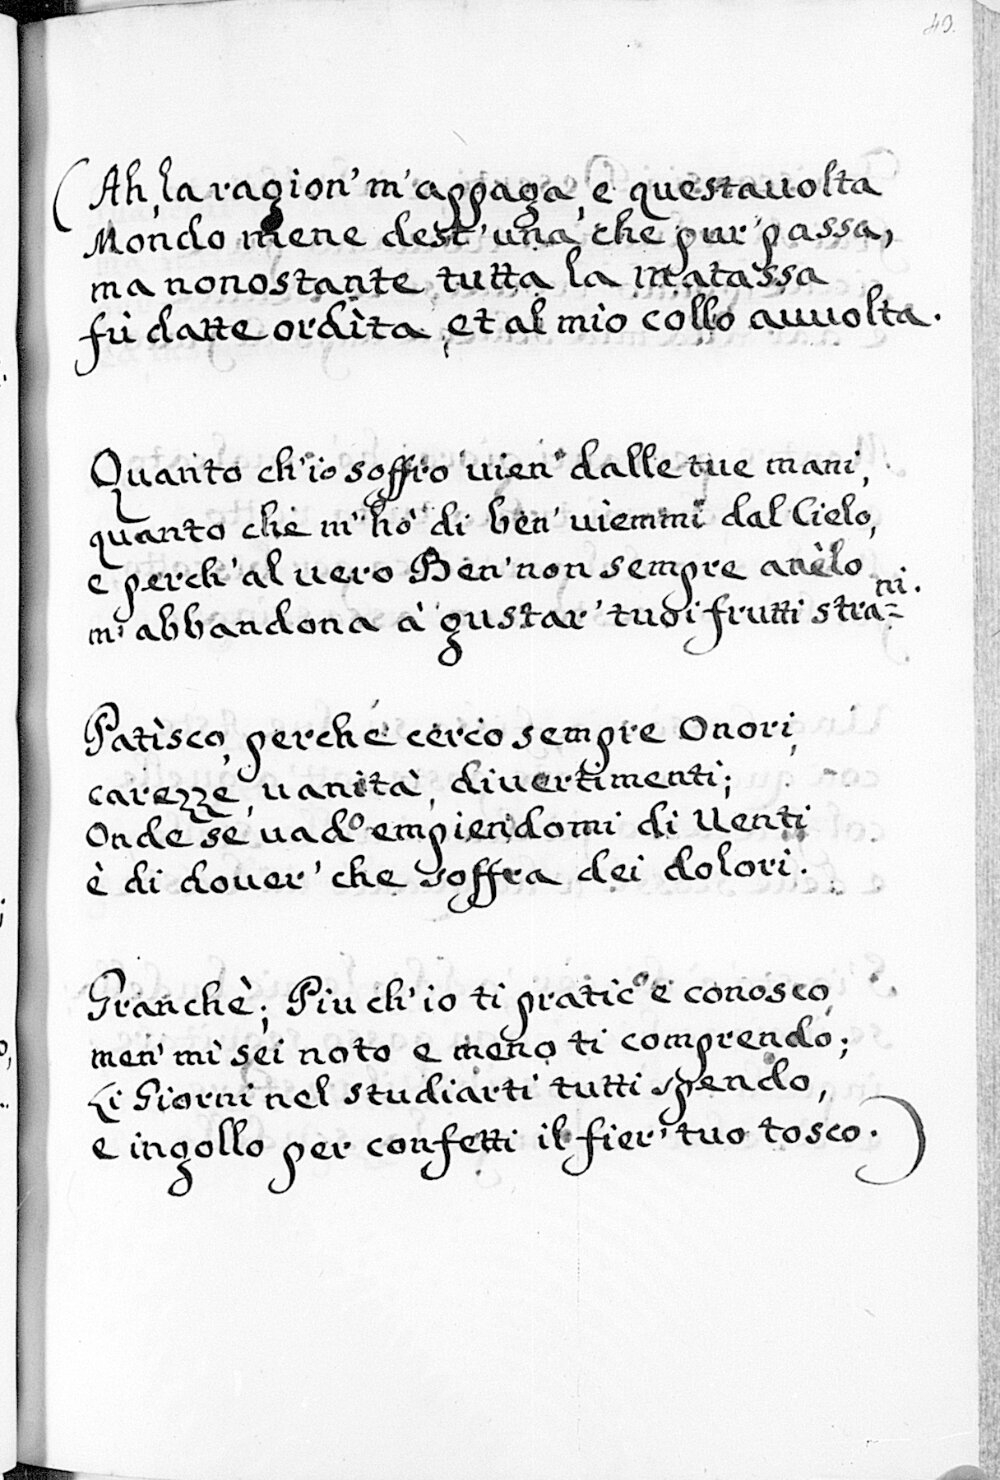 49.
(Ah, la ragion' m'appaga, e questauolta
Mondo mene dest' una che pur' passa,
ma nonostante tutta la matassa
fù datte ordìta, et al mìo collo auuolta.
Quanto ch'io soffro uien' dalle tue mani,
quanto che m' hò di ben' uiemmi dal Cielo,
e perch' al uero Ben' non sempre anèlo
m' abbandona à gustar' tuoi frutti stra=ni.
Patìsco, perche cerco sempre Onori,
carezze, uanità, diuertimenti;
Onde se uado empiendomi di Uenti
è di douer' che soffra dei dolori.
Granchè; Piu ch'io ti pratico e conosco,
men' mì sei noto e meno ti comprendo;
Li Giorni nel studiarti tutti spendo,
e ingollo per confetti il fier' tuo tosco.)